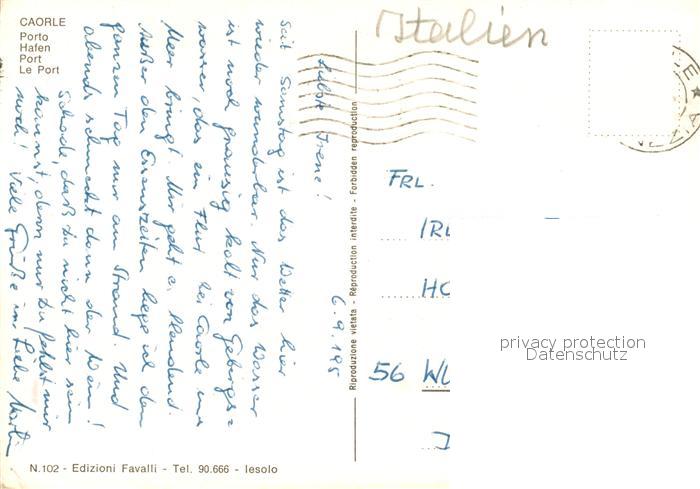 CAORLE
Porto
Hafen
Port
Le Port
Italien
6.9.
Liebste Irene!
Seit Samstag ist das Wetter hier
wieder wunderbar. Nur das Wasser
ist noch grausig kalt von Gebirgs=
wasser, das ein Fluß bei Caorle ins
Meer bringt. Mir geht es blendend.
Außer den Essenszeiten liege ich den
ganzen Tag nur am Strand. Und
abends schmeckt dann der Wein!
Schade, daß Du nicht hier sein
kannst, denn nur Du fehlst mir
noch! Viele Grüße in Liebe
Riproduzione vietata - Réproduction interdite - Forbidden reproduction
FRL.
IR
HO
56 WU
privacy protection
Datenschutz
N.102 - Edizioni Favalli - Tel. 90.666 - Iesolo